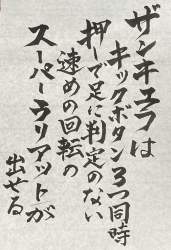 ザンギエフは
キックボタン3つ同時
押しで足に判定のない
速めの回転の
スーパーラリアットが
出せる